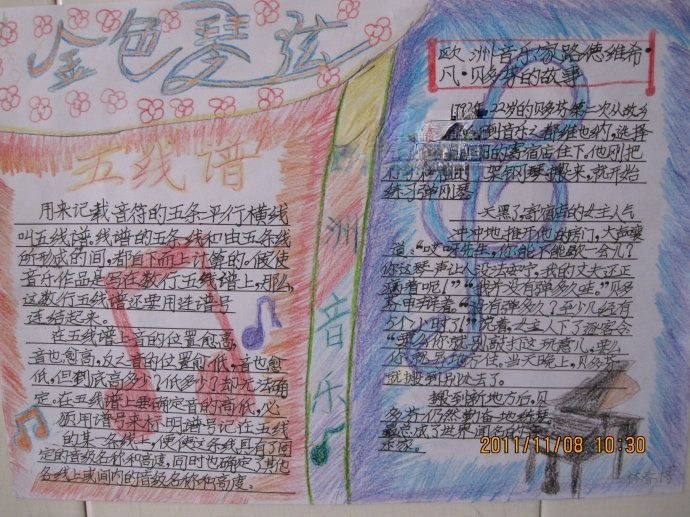 金色琴弦
五线谱
用来记载音符的五条平行横线
叫五线谱。线谱的五条线和由五条线
所形成的间,都自下而上计算的。假使
音乐作品是写在数行五线谱上,那么
这数行五线谱还要用连谱号
连结起来。
在五线谱上音的位置愈高,
音也愈高,反之音的位置愈低,音也愈
低,但到底高多少?低多少?却无法确
定。在五线谱上要确定音的高低,必
须用谱号来标明。谱号记在五线
的某一条线上,便使这条线具有了固
定的音级名称和高度,同时也确定了其他
各线上或间内的音级名称和高度。
欧洲音乐
欧洲音乐家路德维希·
凡·贝多芬的故事
1792年,22岁的贝多芬第一次从故乡
到音乐之都维也纳,选择
的寄宿店住下。他刚把
架钢琴搬来,就开始
练习弹刚琴。
天黑了,寄宿店的女主人气
冲冲地推开他的房门,大声嚷
道:“哎呀先生,你能不能歇一会儿?
你这琴声让人没法安宁,我的丈夫还正
病着呢!”“我并没有弹多久哇。”贝多
芬申辩着。“没有弹多久?至少已经有
5个小时了!”说着,女主人下了逐客令
你就别敲打这玩意儿,要么
你就另找地方住。当天晚上,贝多芬
就搬到别处去了。
搬到新地方后,贝
多芬仍然勤奋地练琴
最终成了世界闻名的音
乐家。
2011/11/08 10:30